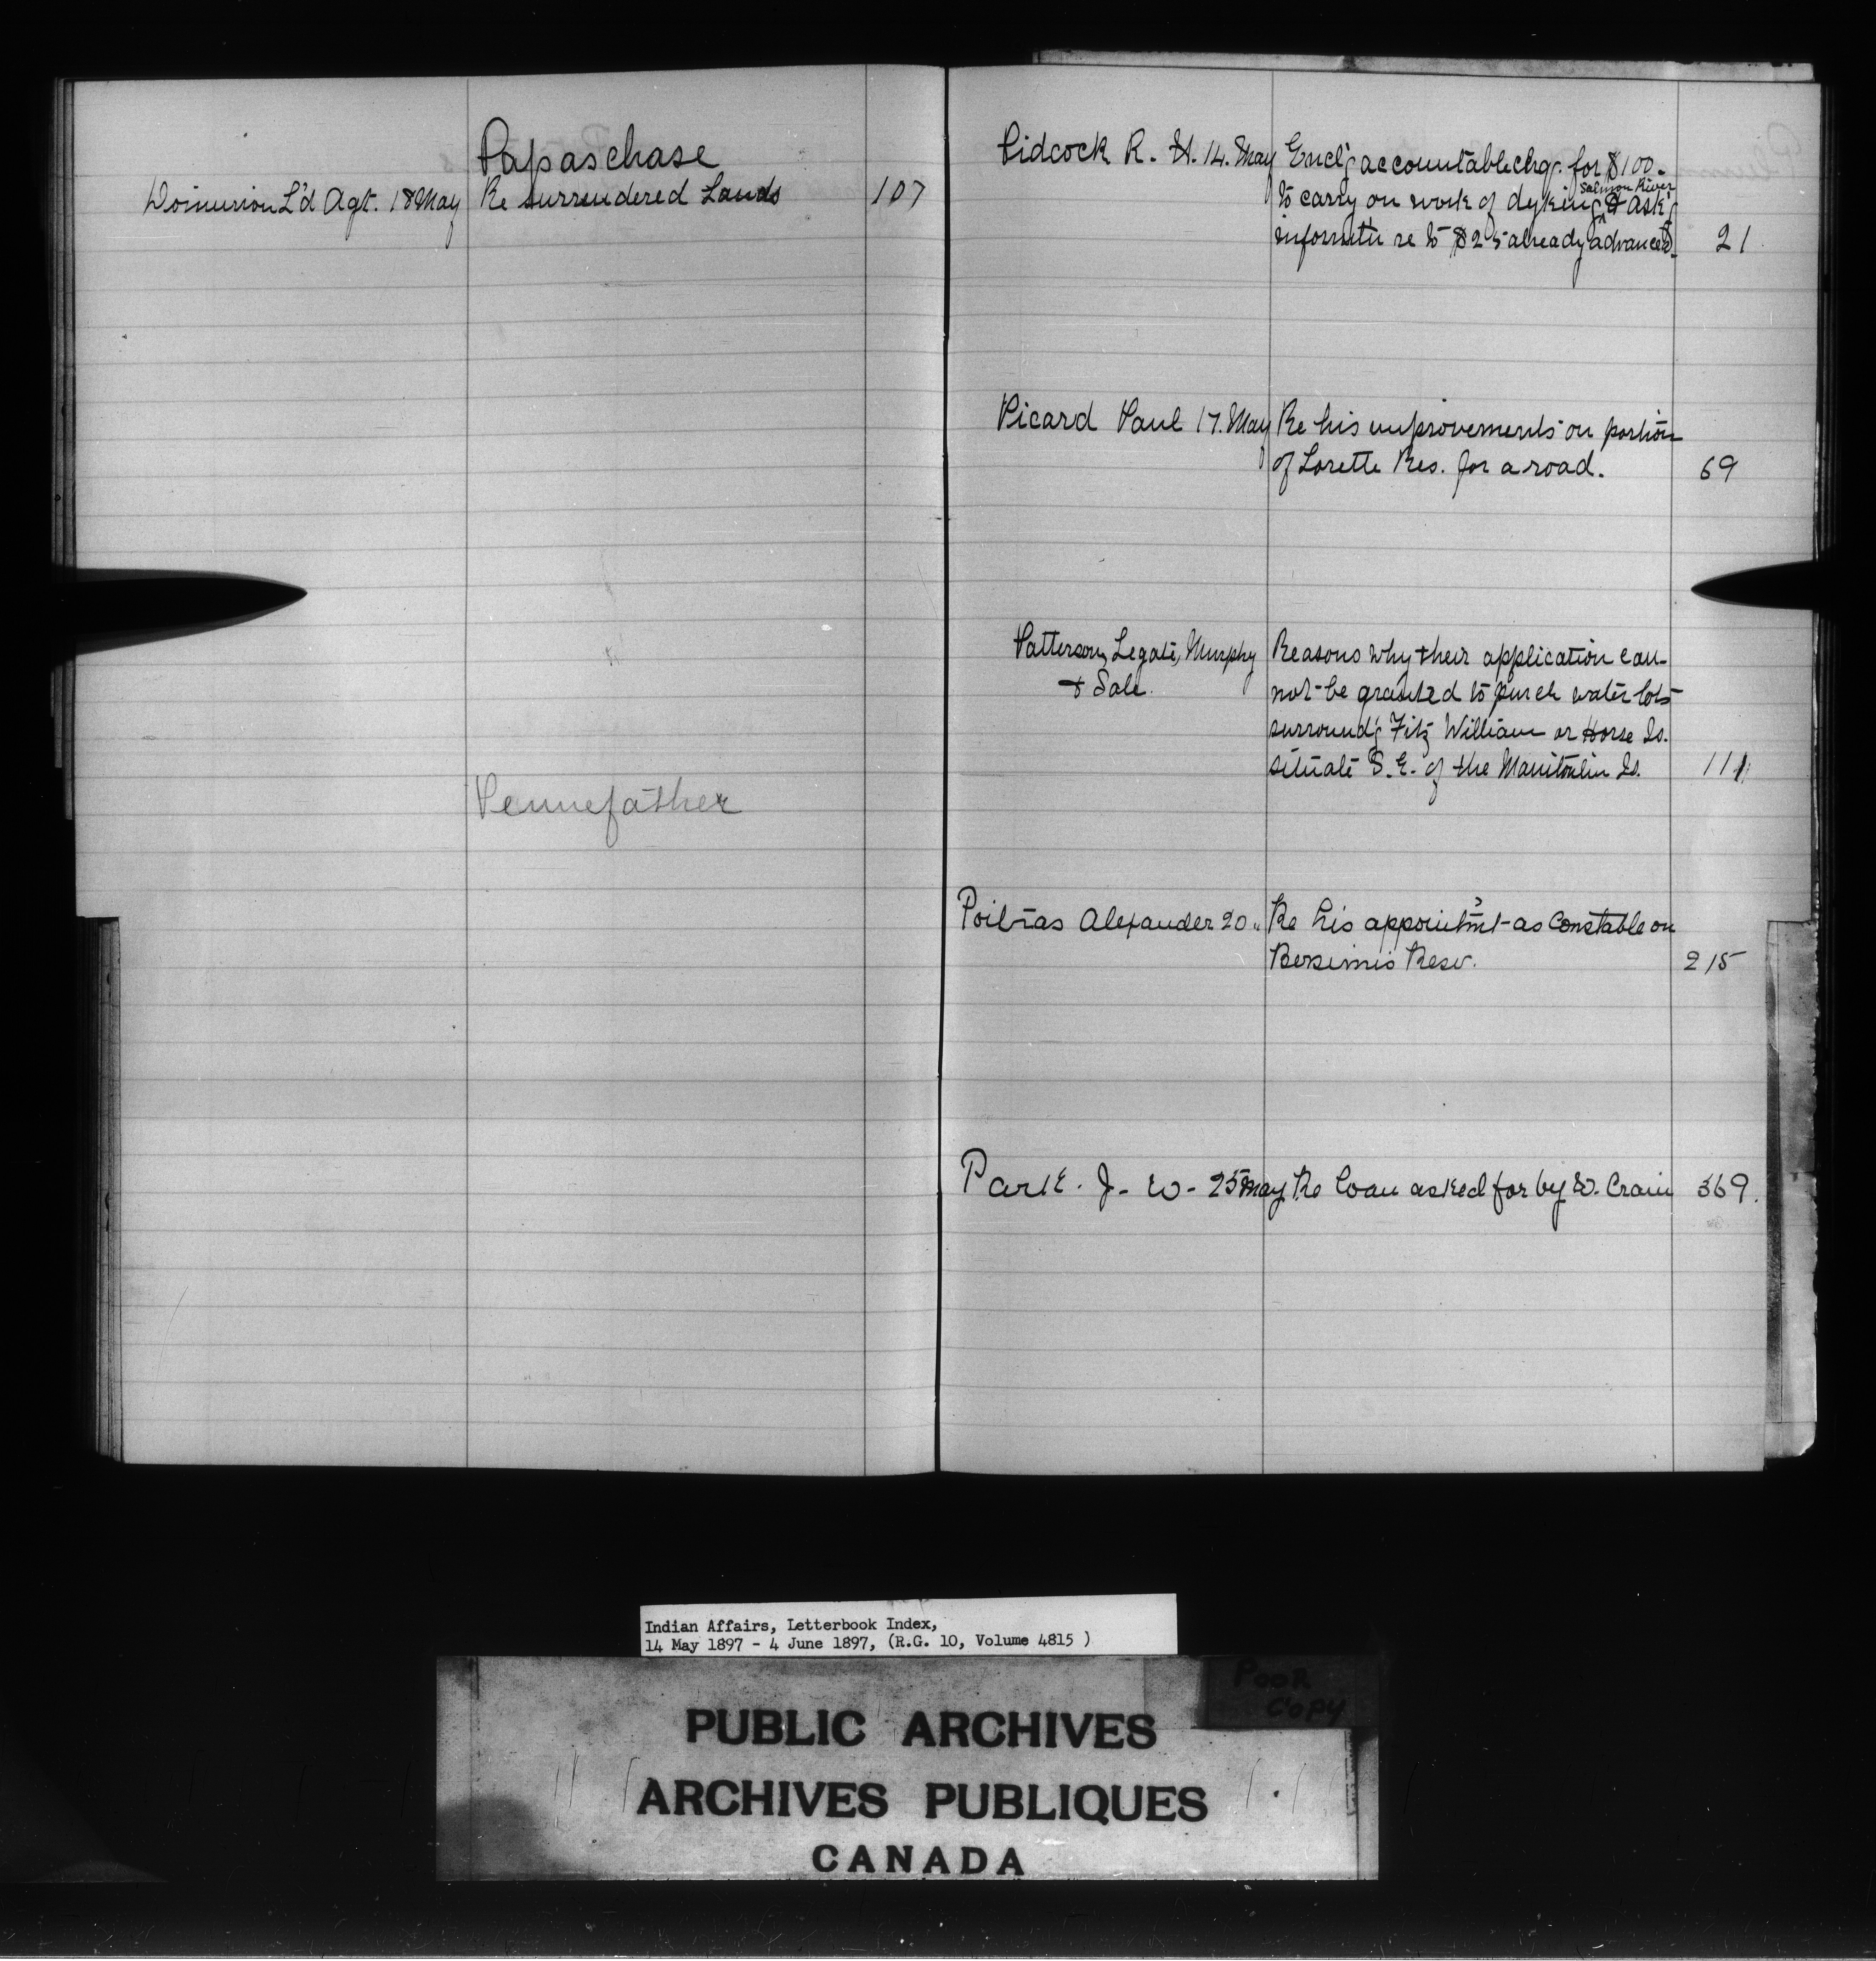 Papaschase
Dominion L'd Agt. 18 May Re surrendered Lands 107
Pennefather
Pidcock R. H. 14. May Encl'g accountable chq. for $100.
to carry on work of dyking Salmon River & ask'g
informtn re to $25 already advanced. 21
Picard Paul 17. May Re his improvements on portion
of Lorette Res. for a road. 69
Patterson, Legate, Murphy Reasons why their application can-
& Sale. not be granted to purch water lots
surround'g Fitz William or Horse Is.
situate S.E. of the Manitoulin Is. 111
Poitras Alexander 20 " Re his appointm't as Constable on
Bersimis Resv. 215
Park. J. W. 25 May Re loan asked for by W. Crain 369.
Indian Affairs, Letterbook Index,
14 May 1897 - 4 June 1897, (R.G. 10, Volume 4815 )
POOR
COPY
PUBLIC ARCHIVES
ARCHIVES PUBLIQUES
CANADA